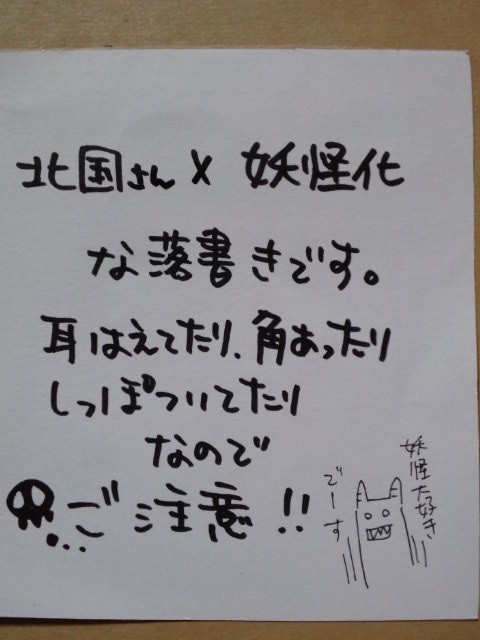 北国さん×妖怪化
な落書きです。
耳はえてたり、角あったり
しっぽついてたり
なので
ご注意!!
妖怪大好き
でーす